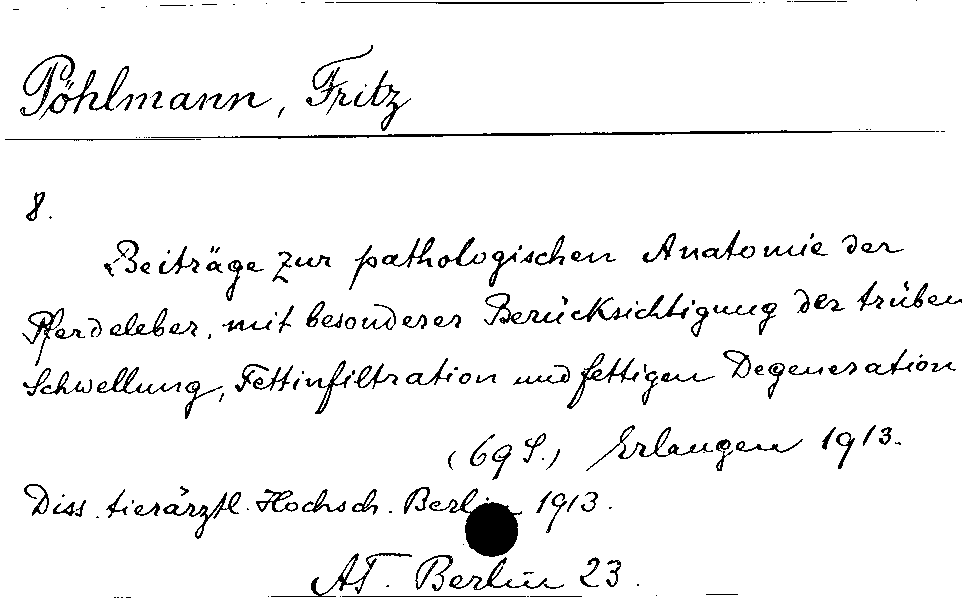 Pöhlmann, Fritz
8.
Beiträge zur pathologischen Anatomie der
Pferdeleber, mit besonderer Berücksichtigung der trüben
Schwellung, Fettinfiltration und fettigen Degeneration
(69 S.) Erlangen 1913.
Diss. tierärztl. Hochsch. Berlin 1913.
AT. Berlin 23.